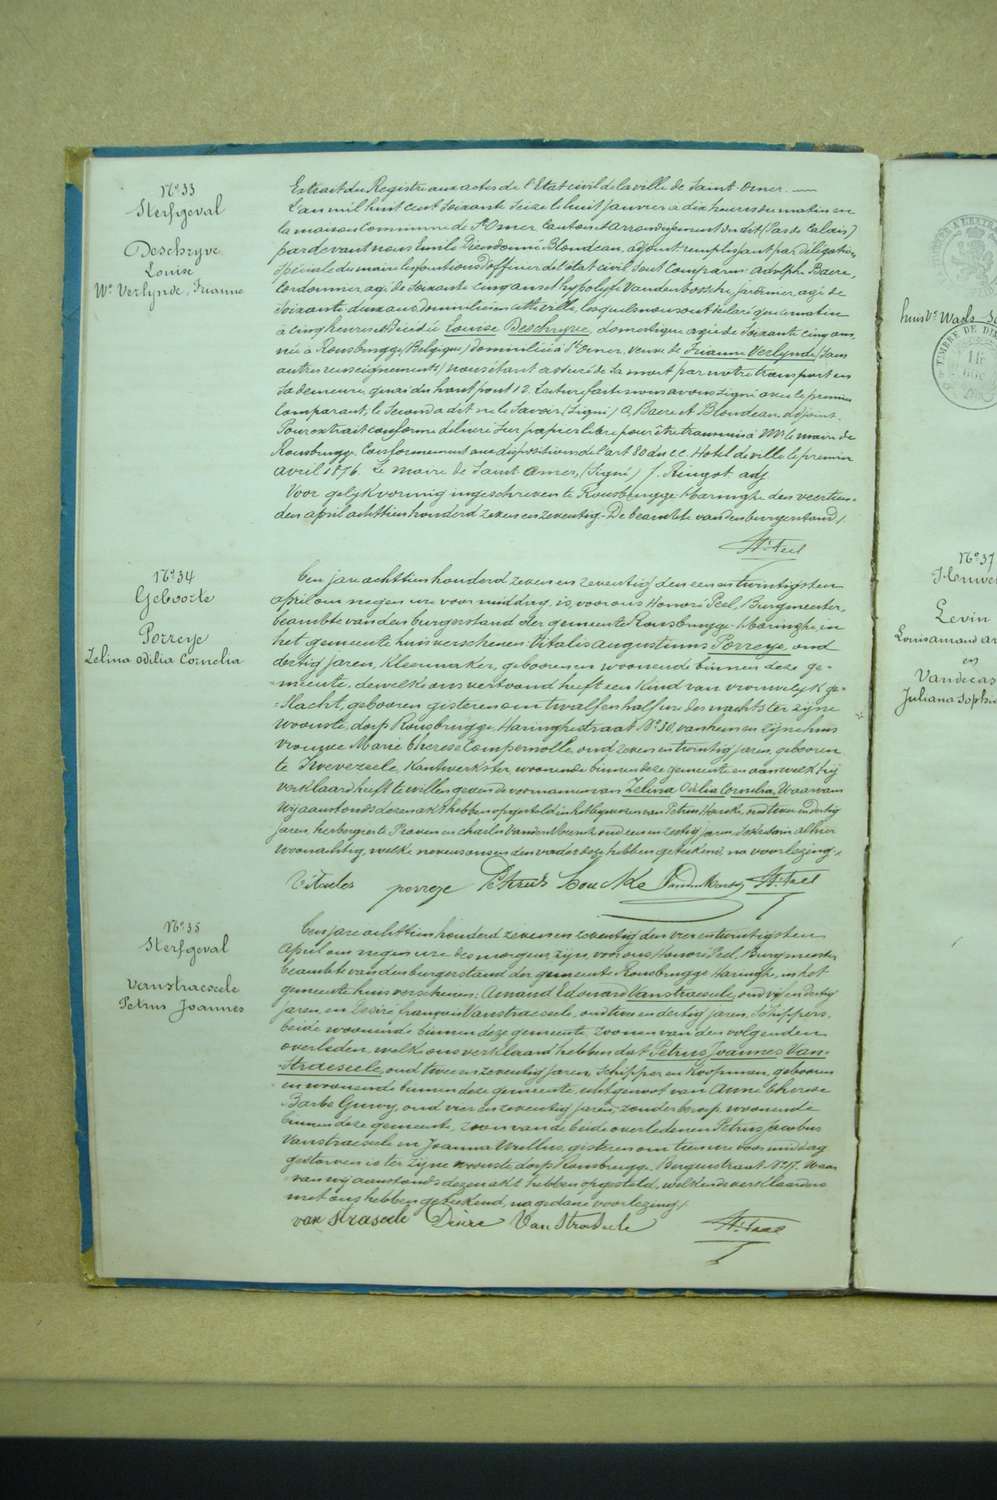 N° 33
Sterfgeval
Deschryve
Louise
We Verlynde, Frianne
Extrait du Registre aux actes de l'Etat civil de la ville de Saint-Omer.
L'an mil huit cent soixante seize le huit janvier à dix heures du matin en
la maison commune de St Omer canton et arrondissement du dit (Pas de Calais)
par devant nous Emile Dieudonné Blondeau, adjoint remplissant par délégation
spéciale du maire les fonctions d'officier de l'état civil sont comparus Adolphe Baere,
cordonnier agé de soixante cinq ans et hypolyte Vandenbossche jardinier agé de
soixante deux ans domiciliés en cette ville, lesquels nous ont déclaré que ce matin
à cinq heures est décédée Louise Deschryve, domestique agée de soixante cinq ans,
née à Rousbrugge (Belgique) domiciliée à St Omer, veuve de Frianne Verlynde, (sans
autres renseignements) nous étant assuré de la mort par notre transport en
sa demeure, quai du haut pont 12. Lecture faite nous avons signé avec le premier
comparant, le second a dit ne le savoir, (signé) A. Baere et Blondeau adjoint.
Pour extrait conforme délivré sur papier libre pour être transmis à Mr le maire de
Rousbrugge. Conformement aux dispositions de l'art 80 du C.C. Hotel de ville le premier
avril 1876. Le maire de Saint Omer, (signé) J. Ringot adj
Voor gelykvormig ingeschreven te Rousbrugge-Haringhe den veertien-
den april achttien honderd zeven en zeventig. De beambte van den burgerstand,
H. Peel
N° 34
Geboorte
Porreye
Zelina Odilia Cornelia
Den jare achttien honderd zeven en zeventig den een en twintigsten
april om negen ure voor middag, is, voor ons Honoré Peel, Burgmeester,
beambte van den burgerstand der gemeente Rousbrugge-Haringhe in
het gemeente huis verschenen Vitalis Augustinus Porreye, oud
dertig jaren, kleermaker, geboren en woonende binnen deze ge-
meente, dewelke ons vertoond heeft een kind van vrouwelyk ge-
slacht, geboren gisteren om twaalf en half ure des nachts ter zyne
woonste, dorp Rousbrugge, Haringhestraat N° 30, van hem en zyne huis
vrouwe Marie Therese Compernolle, oud zeven en twintig jaren, geboren
te Zwevezeele, kantwerkster, woonende binnen deze gemeente en aan welk hy
verklaard heeft te willen geven de voornamen van Zelina Odilia Cornelia. Waarvan
wy aanstonds dezen akt hebben opgesteld in het bywezen van Petrus Houcke, oud twee en dertig
jaren, herbergier te Proven en Charles Vanden Kerckh oud een en zestig jaren, alhier
woonachtig, welke nevens ons en den vader deze hebben geteekend, na voorlezing,
Vitales porreye Petrus Houcke H. Peel
N° 35
Sterfgeval
Vanstraeseele
Petrus Joannes
Den jare achttien honderd zeven en zeventig den vier en twintigsten
april om negen ure des morgens zyn, voor ons Honoré Peel, Burgmeester
beambte van den burgerstand der gemeente Rousbrugge Haringhe, in het
gemeente huis verschenen: Amand Edouard Vanstraeseele, oud vyf en dertig
jaren, en Desiré françois Vanstraeseele, oud twee en dertig jaren, schippers,
beide woonende binnen deze gemeente, zoonen van den volgenden
overleden, welke ons verklaard hebben dat Petrus Joannes Van-
straeseele, oud twee en zeventig jaren, schipper en koopman, geboren
en woonende binnen deze gemeente, echtgenoot van Anne Therese
Barbe Guwy, oud vier en zeventig jaren, zonder beroep, woonende
binnen deze gemeente, zoon van de beide overledenen Petrus Jacobus
Vanstraeseele en Joanna Wullus, gisteren om tien ure voor middag
gestorven is ter zyne woonste dorp Rousbrugge, Bergenstraat N° 27. Waar
van wy aanstonds dezen akt hebben opgesteld, welken de verklaarders
met ons hebben geteekend, na gedane voorlezing,
van straseele Désire Van Straseele H. Peel
huis Ve Waels
TIMBRE DE DI
N° 37
Huwel
Levin
Louis Amand Ar
en
Vandecas
Juliana Sophi